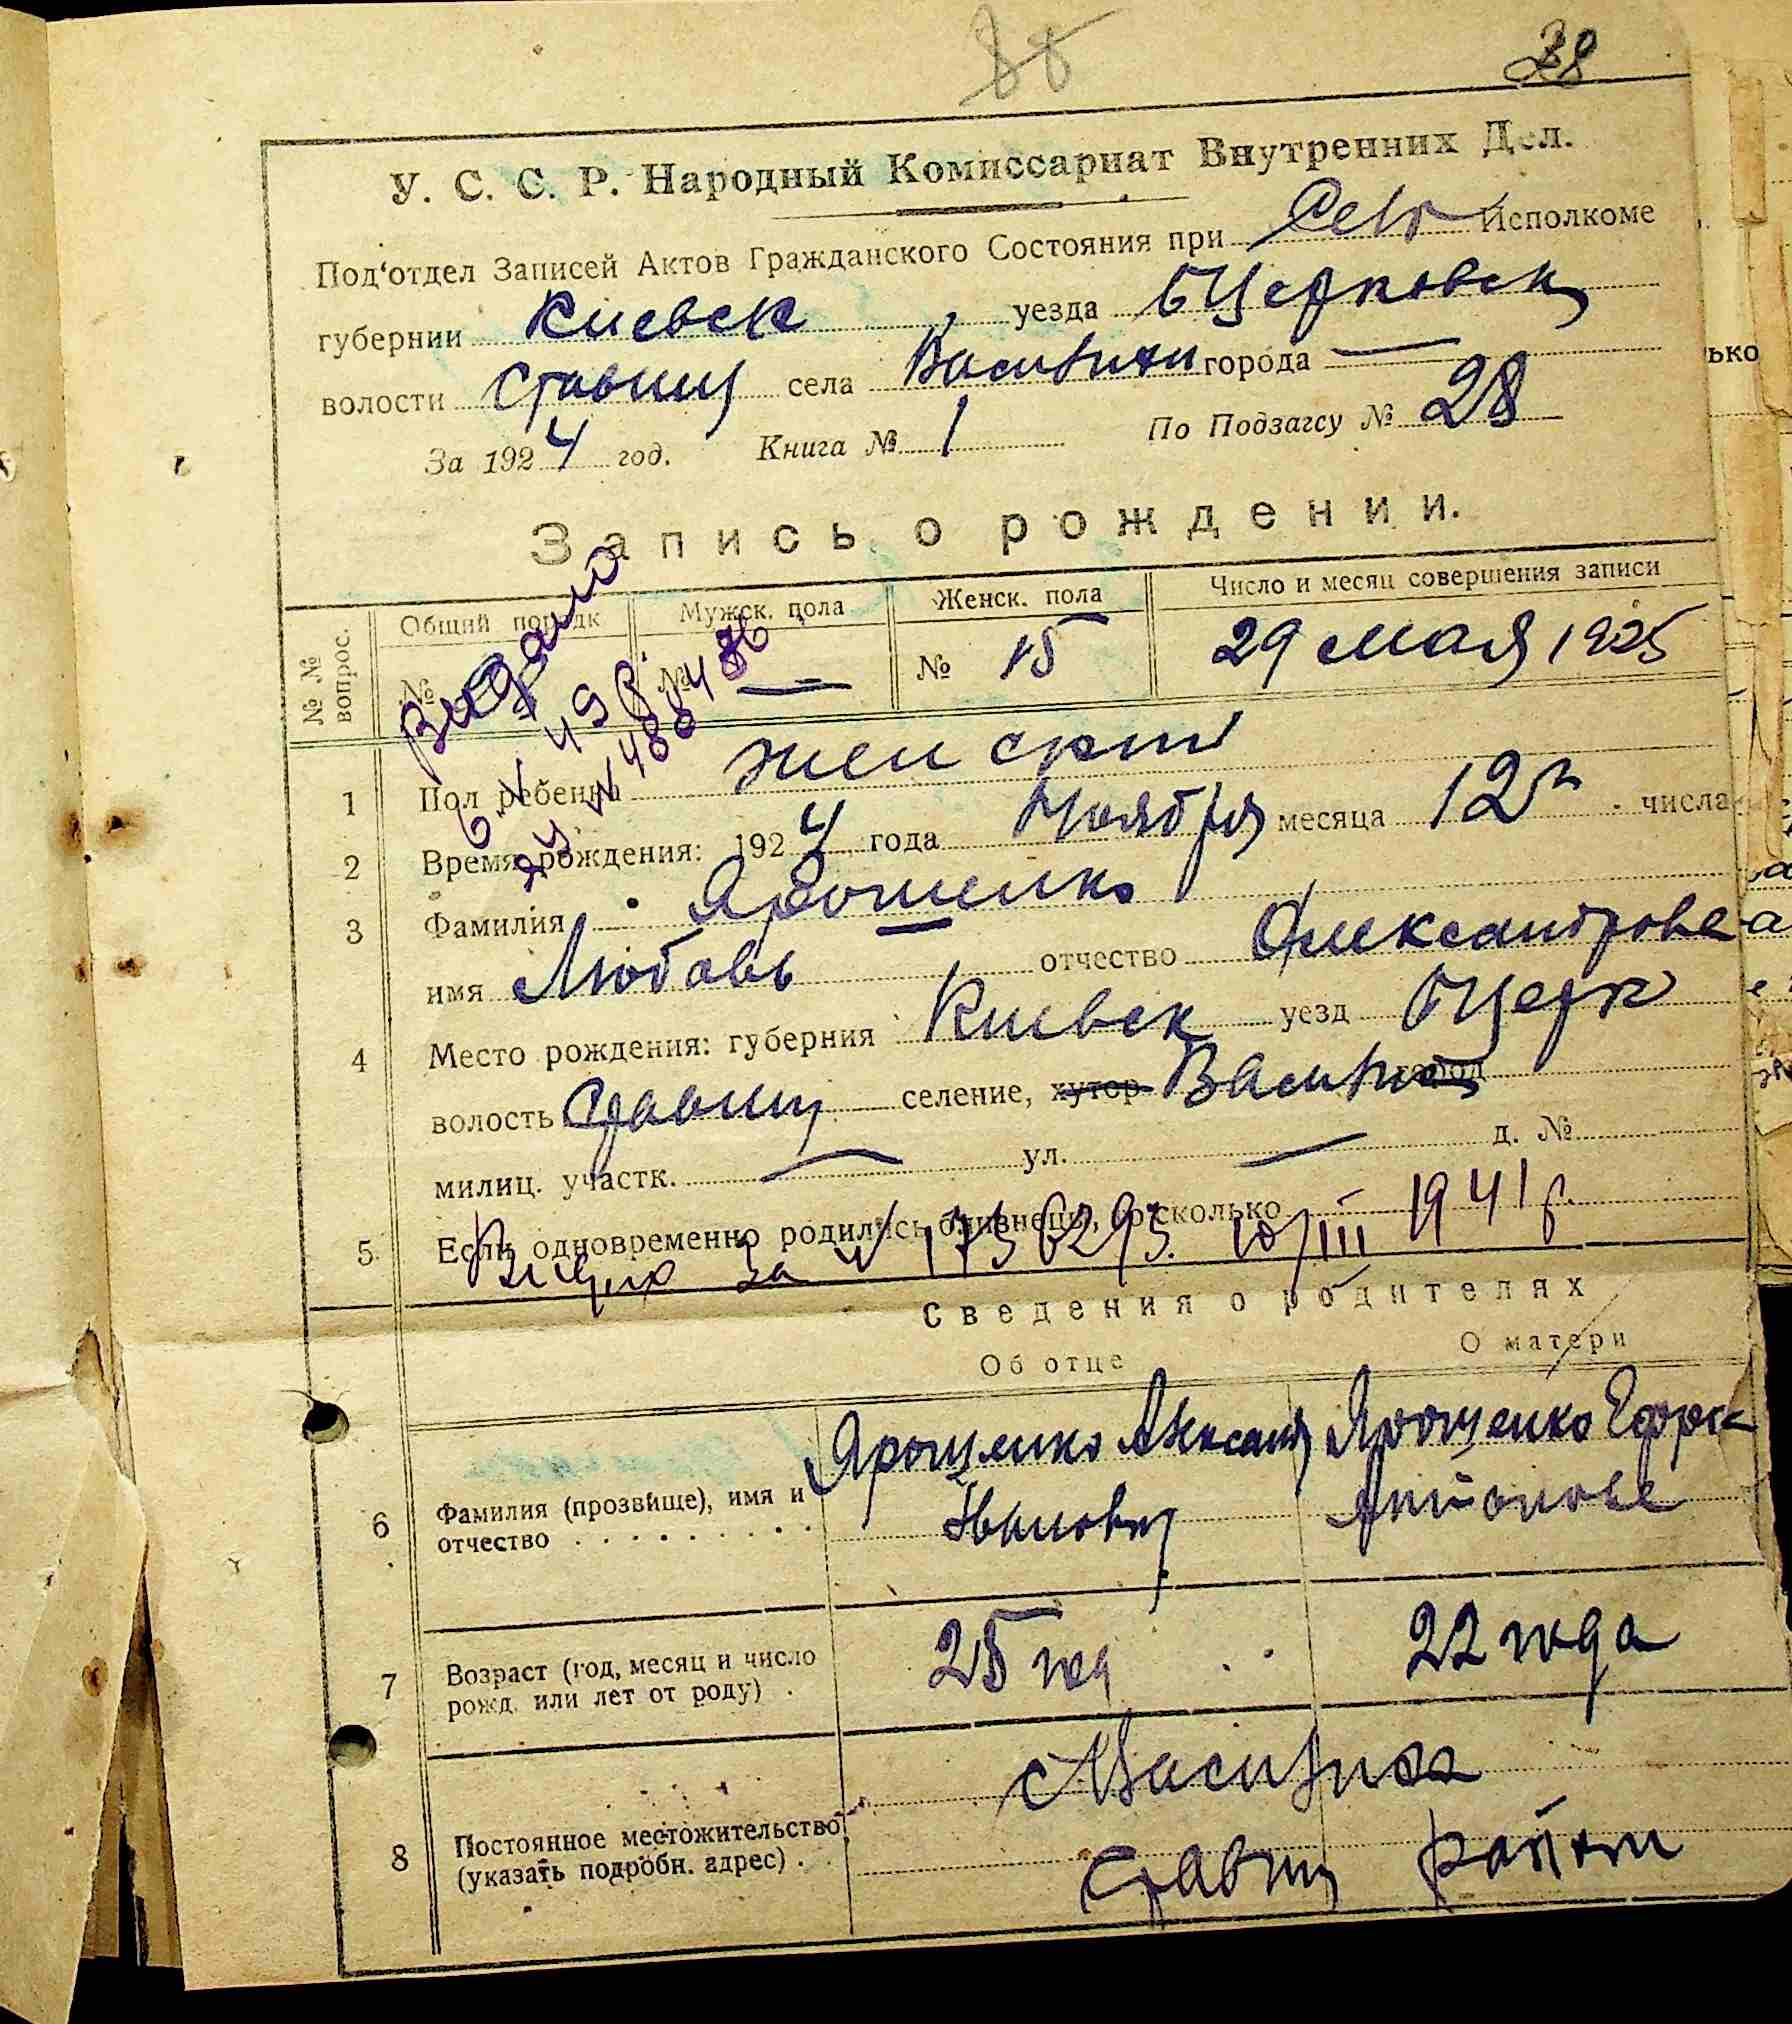 88
28
У. С. С. Р. Народный Комиссариат Внутренних Дел.
Под'отдел Записей Актов Гражданского Состояния при Исполкоме
губернии Киевск уезда БЦерковск
волости Ставищ села города —
За 1924 год. Книга № 1 По Подзагсу № 28
Запись о рождении.
№ № вопрос. Общий порядк Мужск. пола Женск. пола Число и месяц совершения записи
№ № — № 15 29 мая 1925
1 Пол ребенка женский
2 Время рождения: 1924 года Ноября месяца 12 числа
3 Фамилия Ярошенко
имя Любовь отчество Александрова
4 Место рождения: губерния Киевск уезд БЦерк
волость Ставищ селение, хутор город
милиц. участк. — ул. — д. №
5 Если одновременно родились близнецы, то сколько
за № 10/III 1941 р.
Сведения о родителях
Об отце О матери
Ярошенко Александр Ярошенко
6 Фамилия (прозвище), имя и отчество Иванович Антонове
7 Возраст (год, месяц и число рожд. или лет от роду) 25 год 22 года
8 Постоянное местожительство (указать подробн. адрес)
Ставищ район